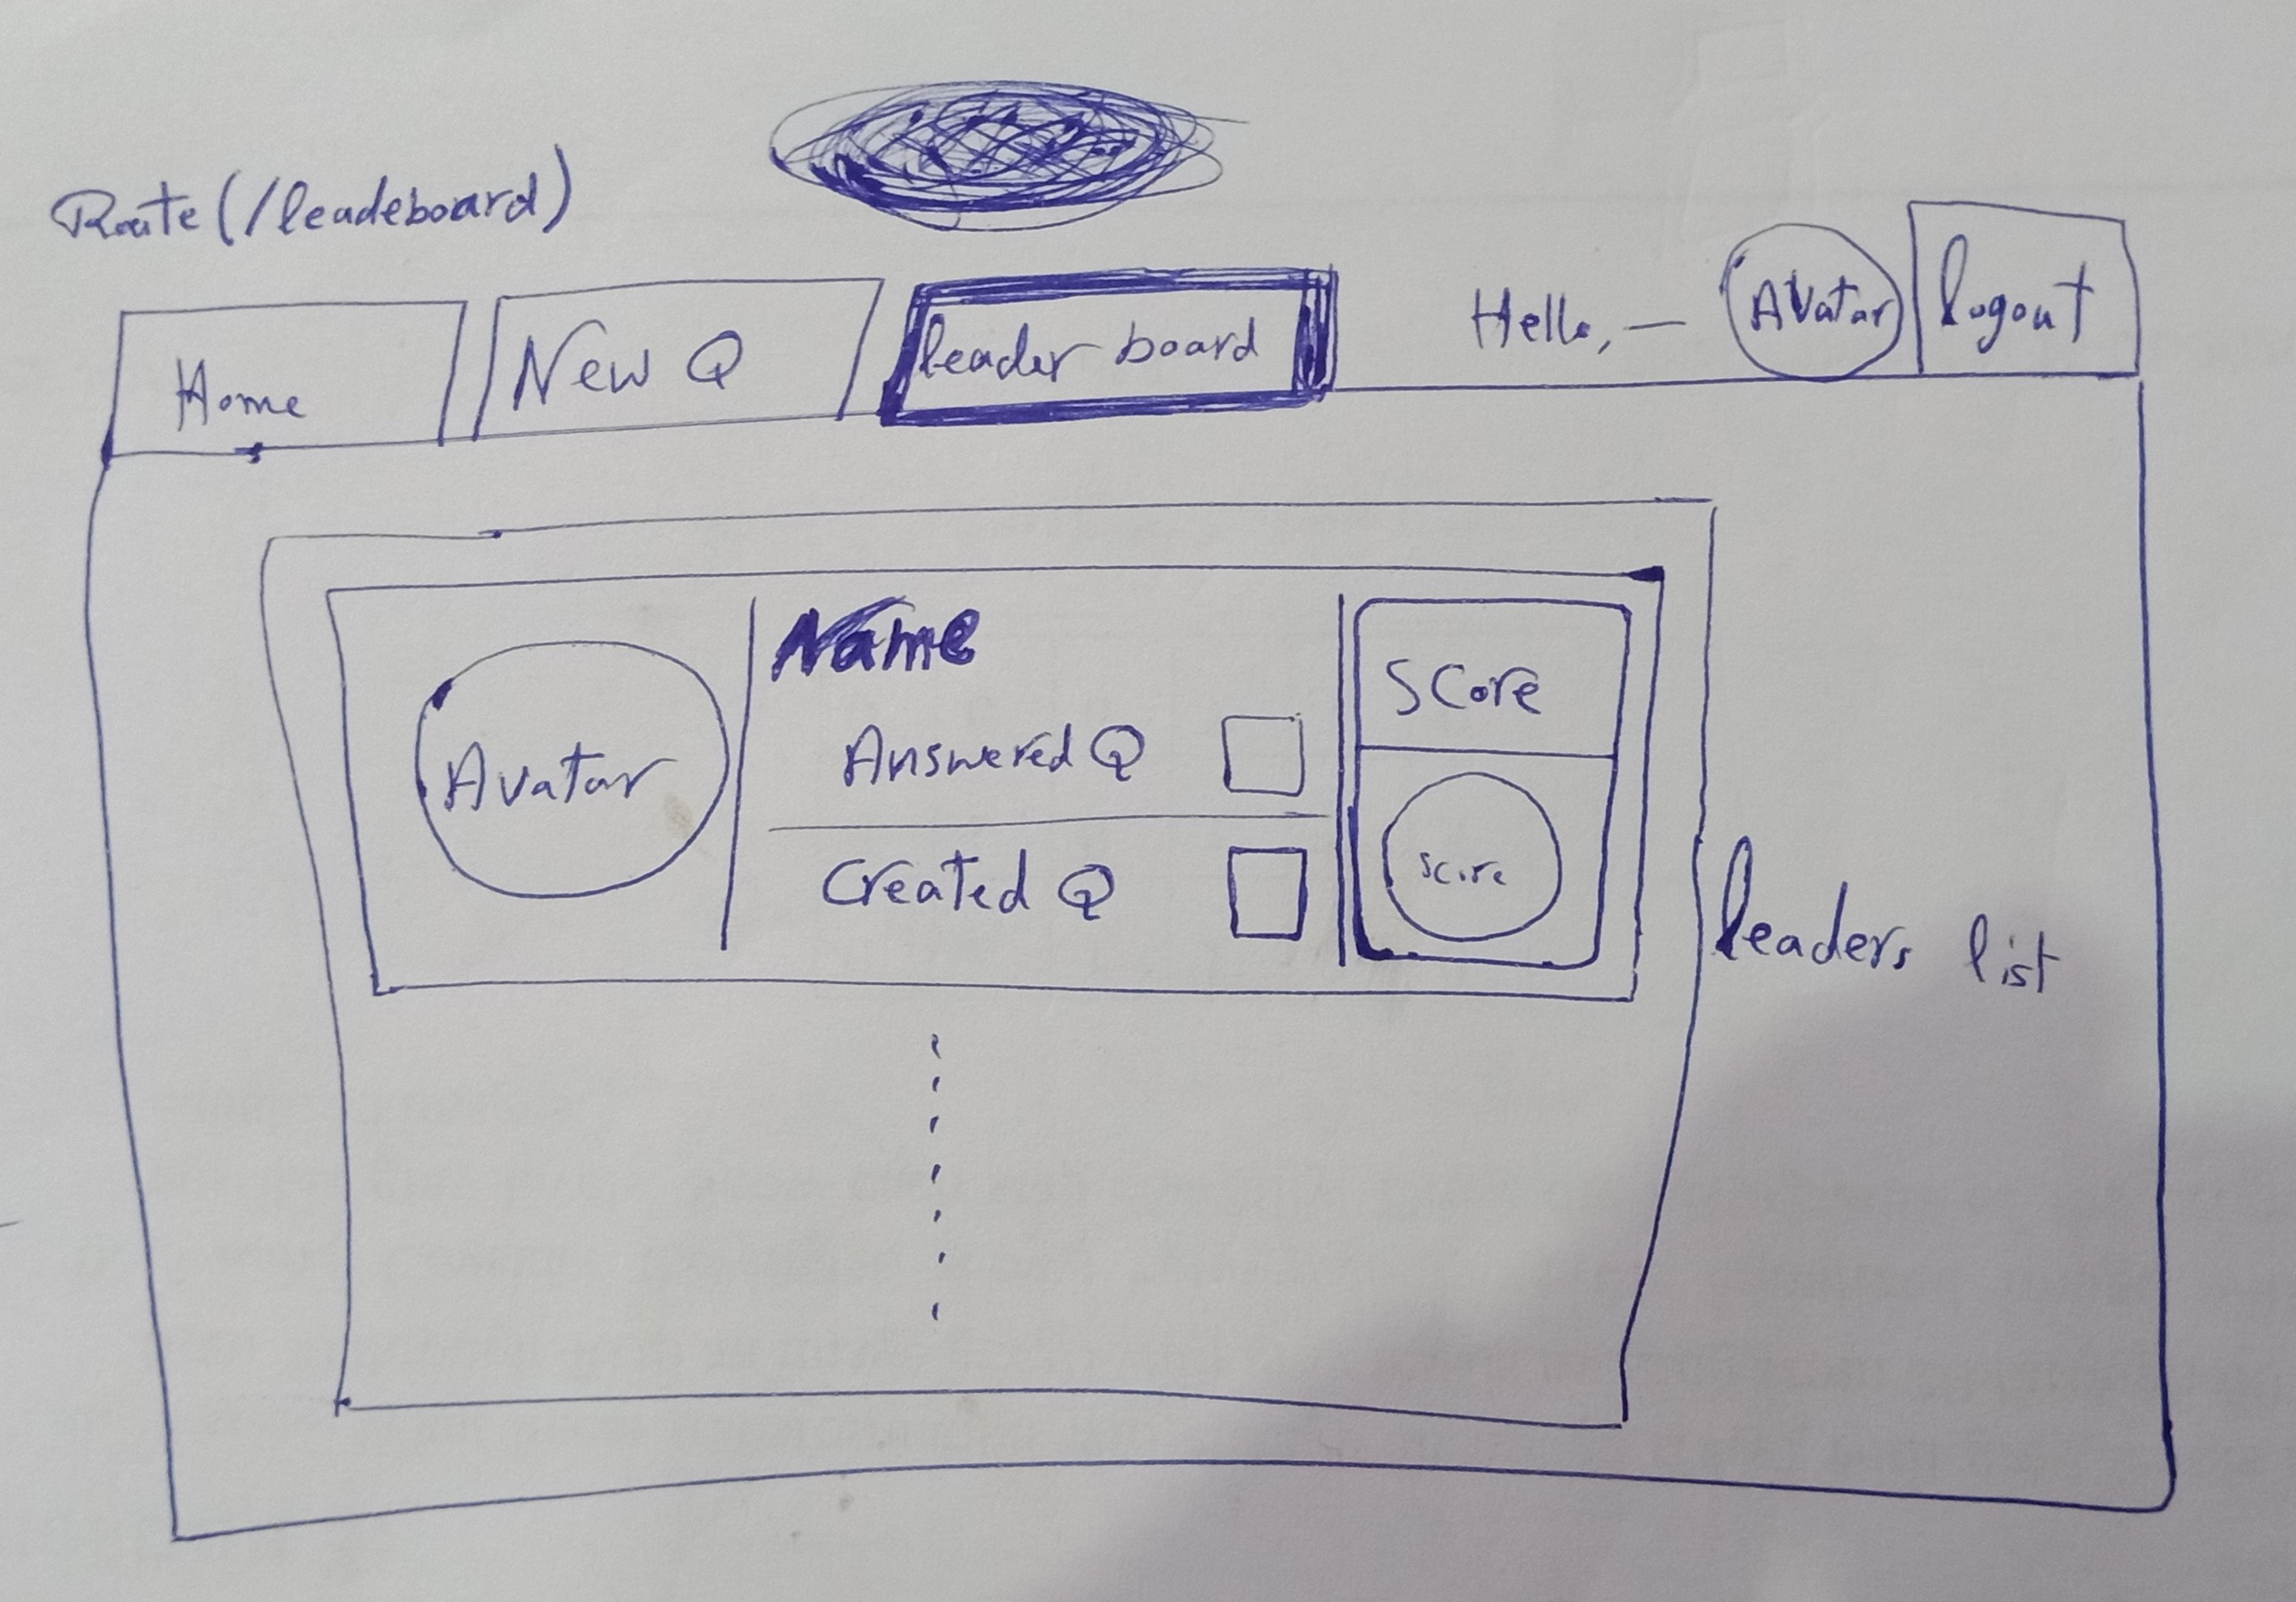 Route(/leadeboard)
Home
New Q
leader board
Hello, —
Avatar
logout
Name
Avatar
Answered Q
Created Q
Score
Score
leaders list